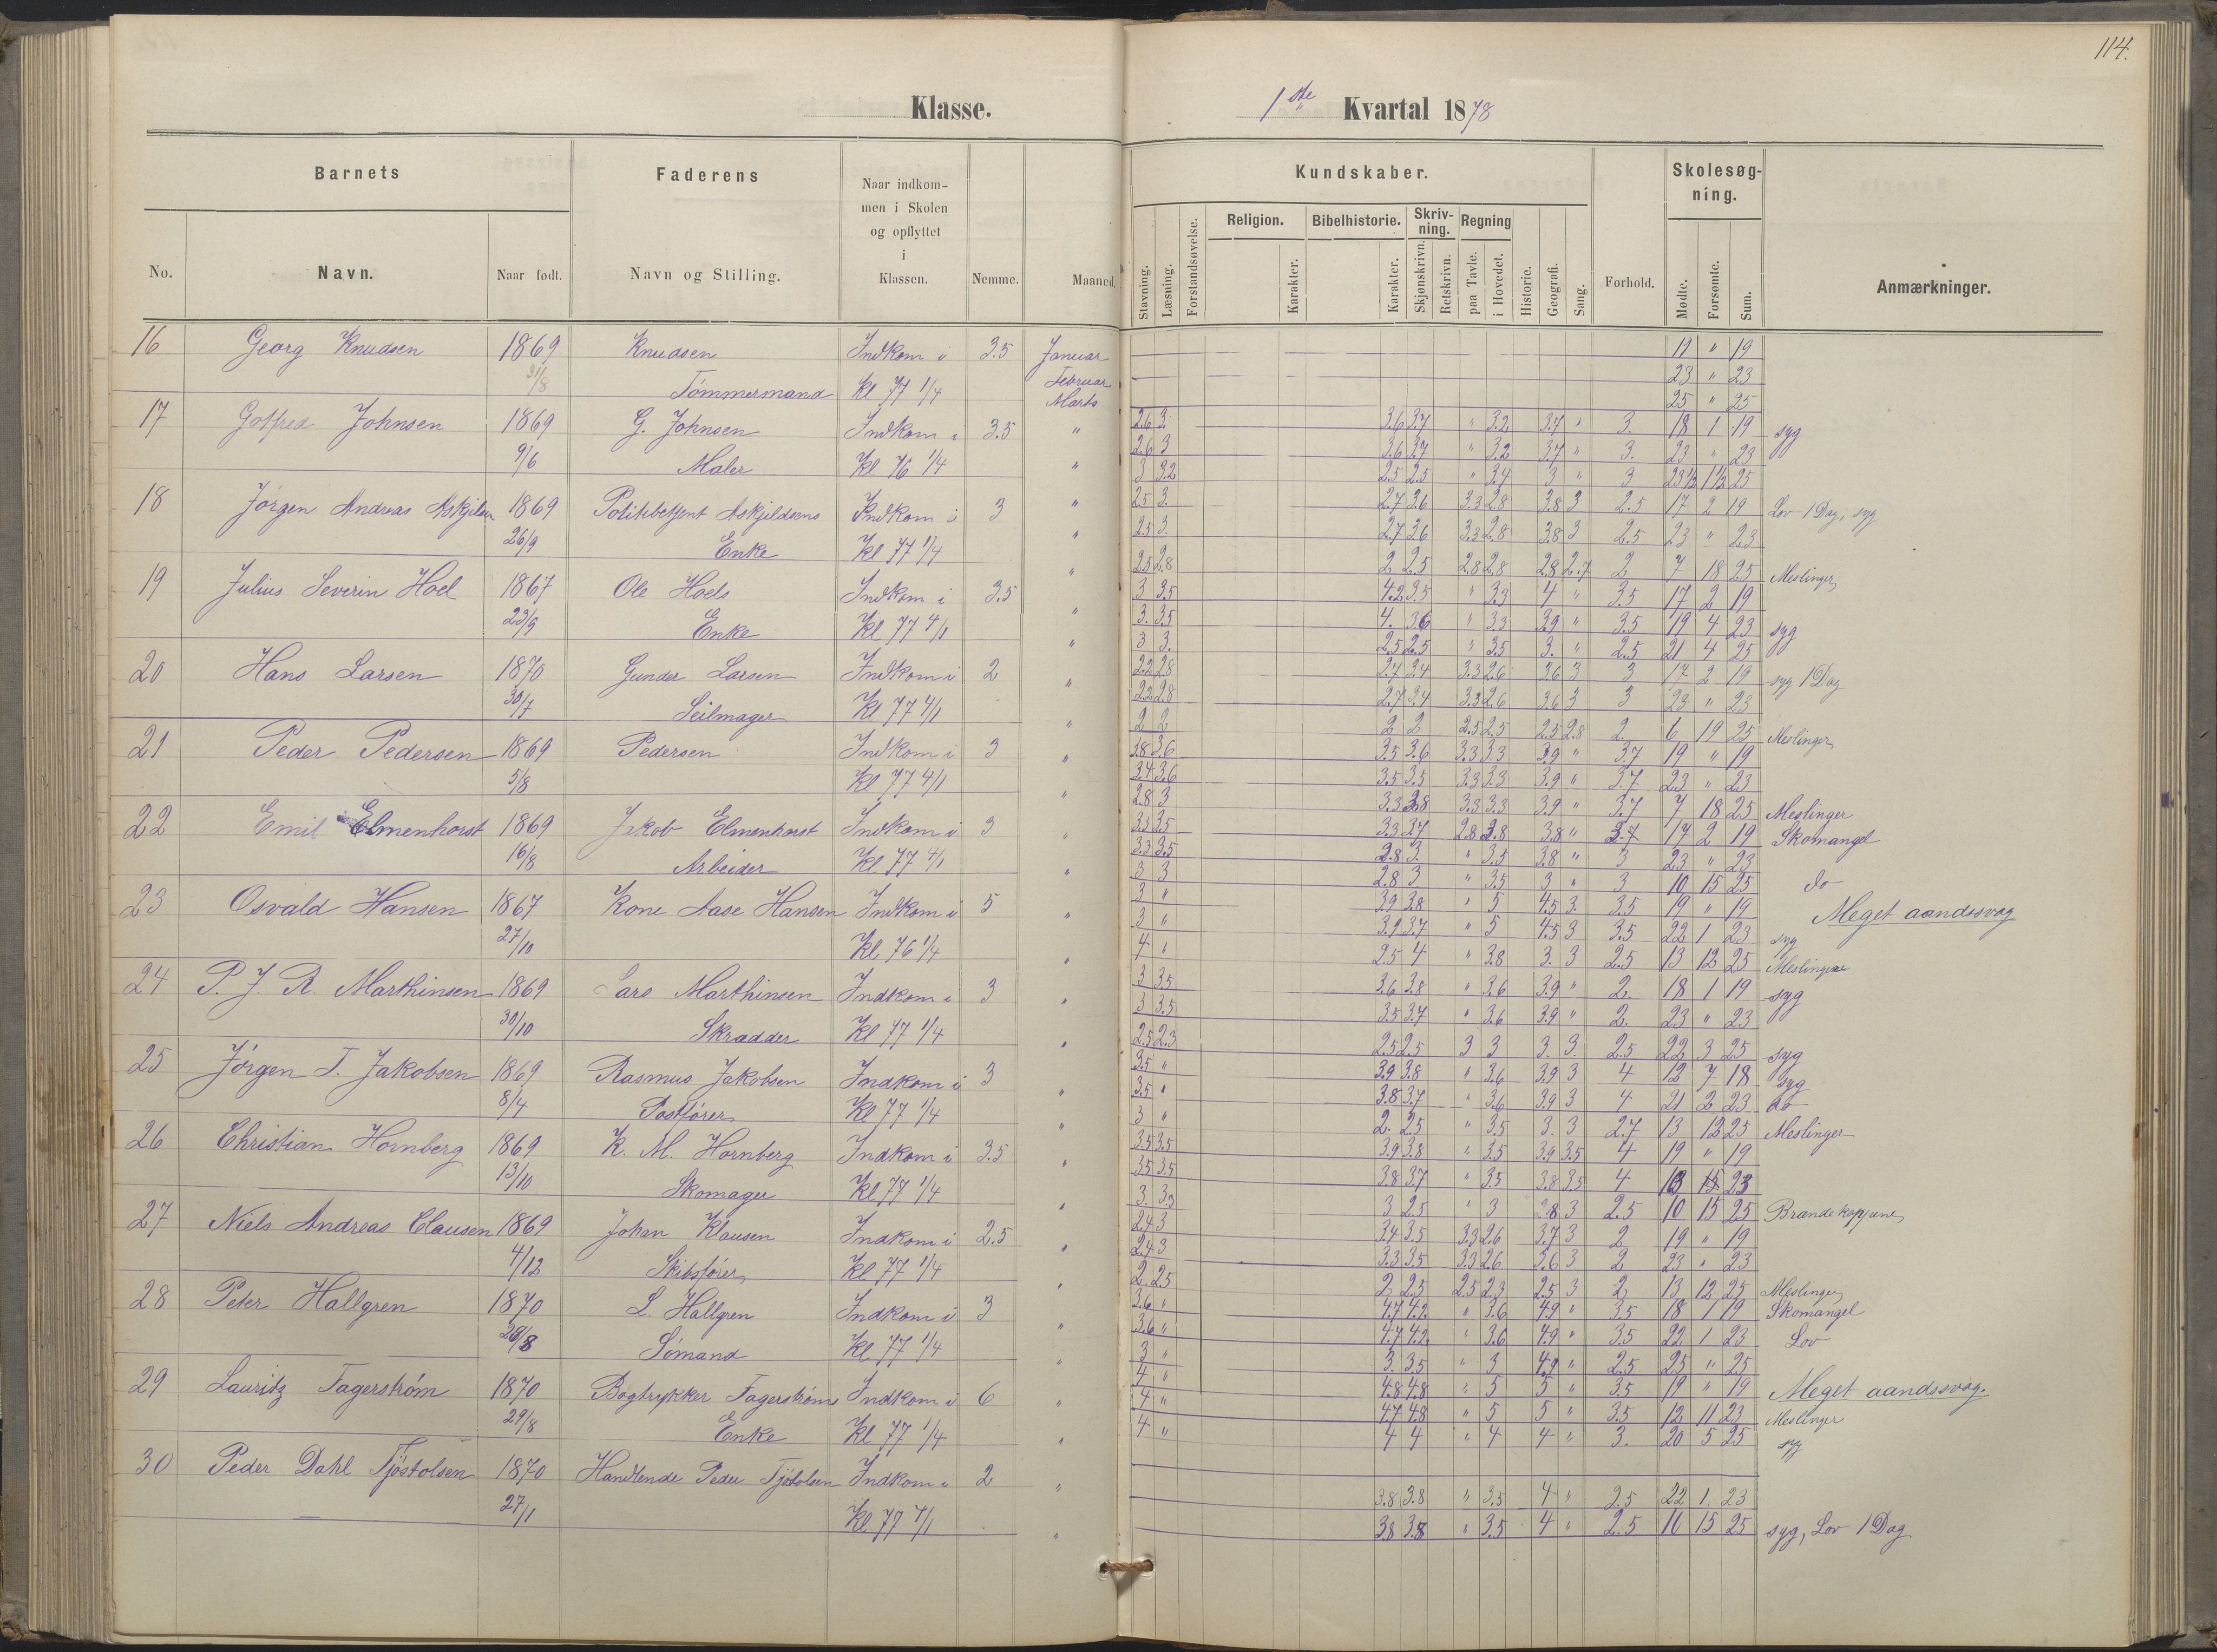 114.
Klasse.
1ste Kvartal 1878
Barnets
Faderens
Naar indkom-
men i Skolen
og opflyttet
i
Klassen.
No.
Navn.
Naar født.
Navn og Stilling.
Nemme.
Maaned.
Kundskaber.
Stavning.
Læsning.
Forstandsøvelse.
Religion.
Karakter.
Bibelhistorie.
Karakter.
Skriv-
ning.
Skjønskrivn.
Retskrivn.
Regning
paa Tavle.
i Hovedet.
Historie.
Geografi.
Sang.
Forhold.
Skolesøg-
ning.
Mødte.
Forsømte.
Sum.
Anmærkninger.
16 Georg Knudsen 1869 Knudsen Indkom i 3.5 Januar
31/8 Tømmermand Kl 77 1/4 Februar
Marts
17 Gotfred Johnsen 1869 G. Johnsen Indkom i 3.5 "
9/6 Maler Kl 76 1/4 "
18 Jørgen Andreas Askjilsen 1869 Politibetjent Askjeldsens Indkom i 3 "
26/9 Enke Kl 77 1/4 "
19 Julius Severin Hoel 1867 Ole Hoels Indkom i 3.5 "
23/9 Enke Kl 77 4/1 "
20 Hans Larsen 1870 Gunder Larsen Indkom i 2 "
30/7 Seilmager Kl 77 4/1 "
21 Peder Pedersen 1869 Pedersen Indkom i 3 "
5/8 Kl 77 4/1 "
22 Emil Elmenhorst 1869 Jakob Elmenhorst Indkom i 3 "
16/8 Arbeider Kl 77 4/1 "
23 Osvald Hansen 1867 Kone Aase Hansen Indkom i 5 "
27/10 Kl 76 1/4 "
24 P. J. R. Marthinsen 1869 Lars Marthinsen Indkom i 3 "
30/10 Skrædder Kl 77 1/4 "
25 Jørgen T. Jakobsen 1869 Rasmus Jakobsen Indkom i 3
8/4 Postfører Kl 77 1/4 "
26 Christian Hornberg 1869 K. M. Hornberg Indkom i 3.5 "
13/10 Skomager Kl 77 1/4 "
27 Niels Andreas Clausen 1869 Johan Klausen Indkom i 2.5 "
4/12 Skibsfører Kl 77 1/4 "
28 Peter Hallgren 1870 L. Hallgren Indkom i 3
26/8 Sømand Kl 77 1/4 "
29 Lauritz Fagerstrøm 1870 Bogtrykker Fagerstrøms Indkom i 6 "
29/8 Enke Kl 77 1/4 "
30 Peder Dahl Tjøstolsen 1870 Handlende Peder Tjøstolsen Indkom i 2 "
27/1 Kl 77 4/1 "
11 " 19
23 " 23
25 " 25
2.6 3. 3.6 3.7 " 3.2 3.7 " 3. 18 1 19 syg
2.6 3 3.6 3.7 " 3.2 3.7 " 3. 23 " 23
3 3.2 2.5 2.5 " 3.4 3 " 3 23 1/2 1 1/2 25
2.5 3. 2.7 3.6 3.3 2.8 3.8 3 2.5 17 2 19 Lov 1 Dag, syg
2.5 3. 2.7 3.6 3.3 2.8 3.8 3 2.5 23 " 23
2.5 2.8 2 2.5 2.8 2.8 2.8 2.7 2 7 18 25 Meslinger
3 3.5 4.2 3.5 " 3.3 4 " 3.5 17 2 19
3. 3.5 4. 3.6 " 3.3 3.9 " 3.5 19 4 23 syg
3 3. 2.5 2.5 " 3.5 3. " 2.5 21 4 25
2.2 2.8 2.7 3.4 3.3 2.6 3.6 3 3 17 2 19 syg 1 Dag
2.2 2.8 2.7 3.4 3.3 2.6 3.6 3 3 23 " 23
2 2 2 2 2.5 2.5 2.5 2.8 2 6 19 25 Meslinger
3.8 3.6 3.5 3.6 3.3 3.3 3.9 " 3.7 19 " 19
3.4 3.6 3.5 3.5 3.3 3.3 3.9 " 3.7 23 " 23
2.8 3 3.3 3.8 3.3 3.3 3.9 " 3.7 7 18 25 Meslinger
3.3 3.5 3.3 3.7 2.8 3.8 3.8 " 3.7 17 2 19 Skomangel
3.3 3.5 2.8 3. " 3.5 3.8 " 3 23 " 23
3 3 2.8 3 " 3.5 3 " 3 10 15 25 do
3 " 3.9 3.8 " 5 4.5 3. 3.5 19 " 19 Meget aandssvag
3 " 3.9 3.7 " 5 4.5 3 3.5 22 1 23 syg
4 " 2.5 4 " 3.8 3. 3 2.5 13 12 25 Meslingene
3 3.5 3.6 3.8 " 3.6 3.9 " 2. 18 1 19 syg
3 3.5 3.5 3.7 " 3.6 3.9 " 2. 23 " 23
2.5 2.3 2.5 2.5 3 3 3. 3 2.5 22 3 25 syg
3.5 " 3.9 3.8 " 3.6 3.9 3 4 12 7 18 syg
3.5 " 3.8 3.7 " 3.6 3.9 3 4 21 2 23 do
3 " 2. 2.5 " 3.5 3. 3 2.7 13 12 25 Meslinger
3.5 3.5 3.9 3.8 " 3.5 3.9 3.5 4 19 " 19
3.5 3.5 3.8 3.7 " 3.5 3.8 3.5 4 23
3. 3.3 3 2.5 " 3 2.8 3 2.5 10 15 25 Brandekoppene
2.4 3 3.4 3.5 3.3 2.6 3.7 3 2 19 " 19
2.4 3 3.3 3.5 3.3 2.6 3.6 3 2 23 " 23
2. 2.5 2 2.5 2.5 2.3 2.5 3 2 13 12 25 Meslinger
3.6 " 4.7 4.2 " 3.6 4.9 " 3.5 18 1 19 Skomangel
3.6 " 4.7 4.2 " 3.6 4.9 " 3.5 22 1 23 Lov
3 " 3. 3.5 " 3 4.9 " 2.5 25 " 25
4 " 4.8 4.8 " 5 5 " 3.5 19 " 19 Meget aandssvag.
4 " 4.7 4.8 " 5 5 " 3.5 12 11 23 Meslinger
4 " 4 4 " 4 4 " 3. 20 5 25 syg
3.8 3.8 " 3.5 4 " 2.5 22 1 23
3.8 3.8 " 3.5 4 " 2.5 10 15 25 syg, Lov 1 Dag